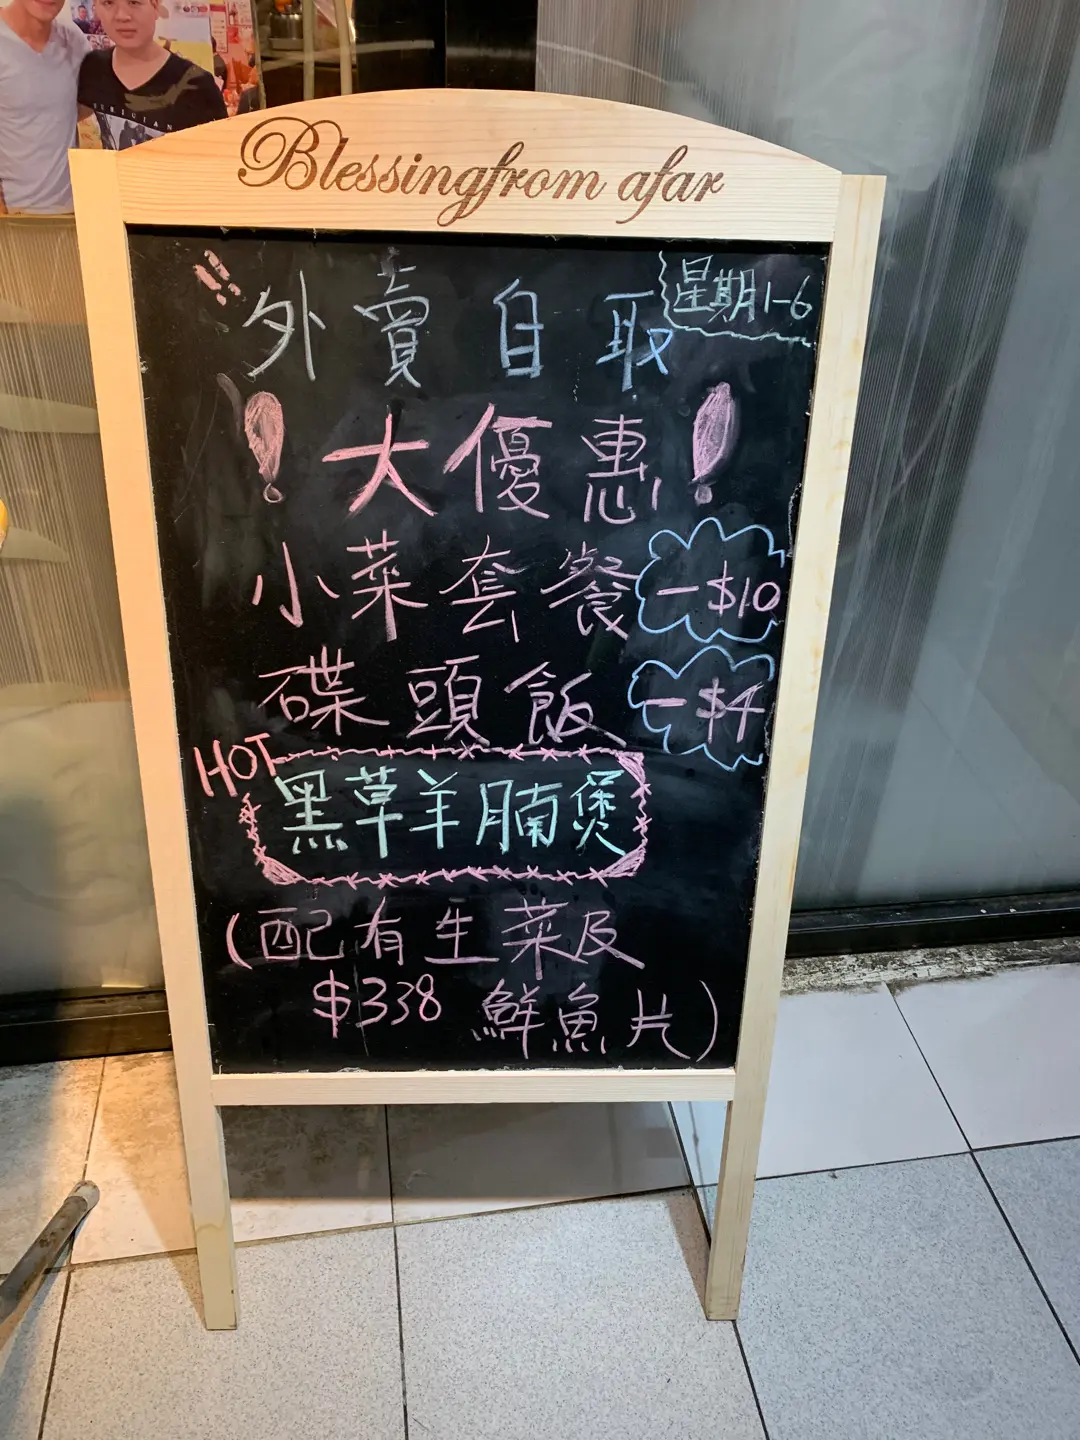 Blessingfrom afar
!! 外賣自取 星期1-6
! 大優惠 !
小菜套餐 -$10
碟頭飯 -$4
HOT
黑草羊腩煲
(配有生菜及
$338 鮮魚片)